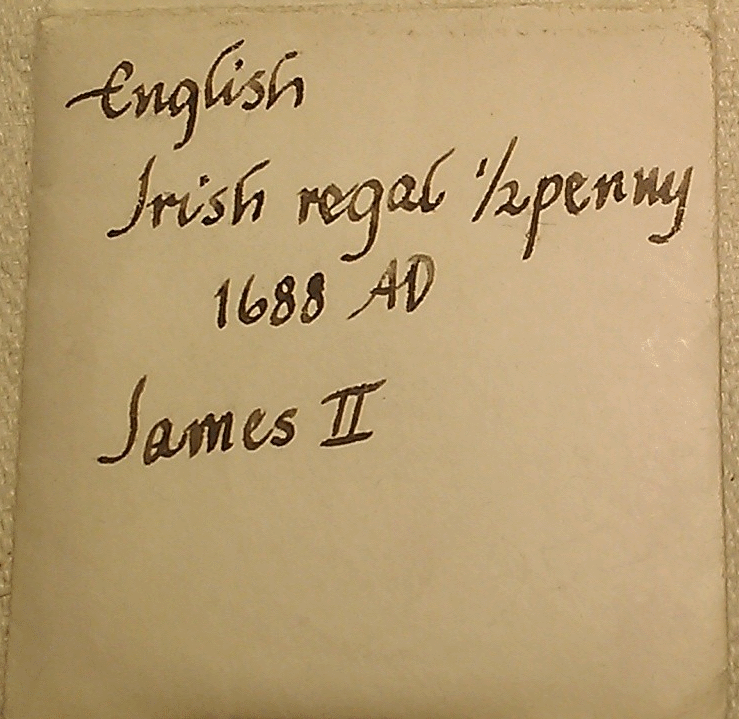 English
Irish regal 1/2penny
1688 AD
James II